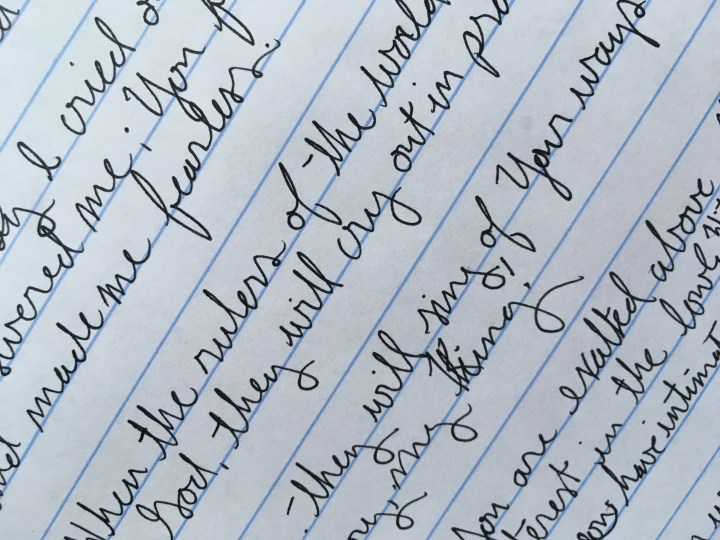 I cried
me; You
and made me fearless.
When the rulers of the world
God, they will cry out in
they will sing of Your ways
my King.
You are exalted above
in the
have intimat